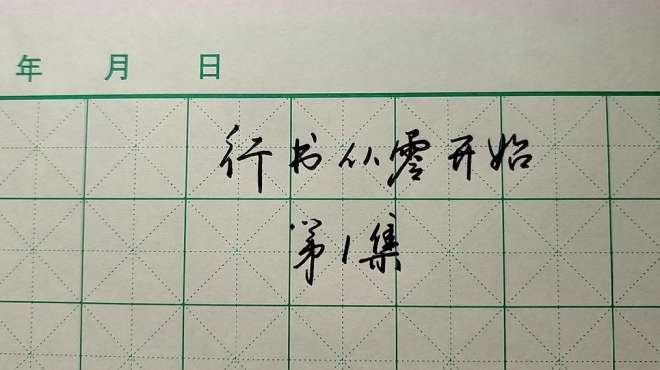 年 月 日
行书从零开始
第1集